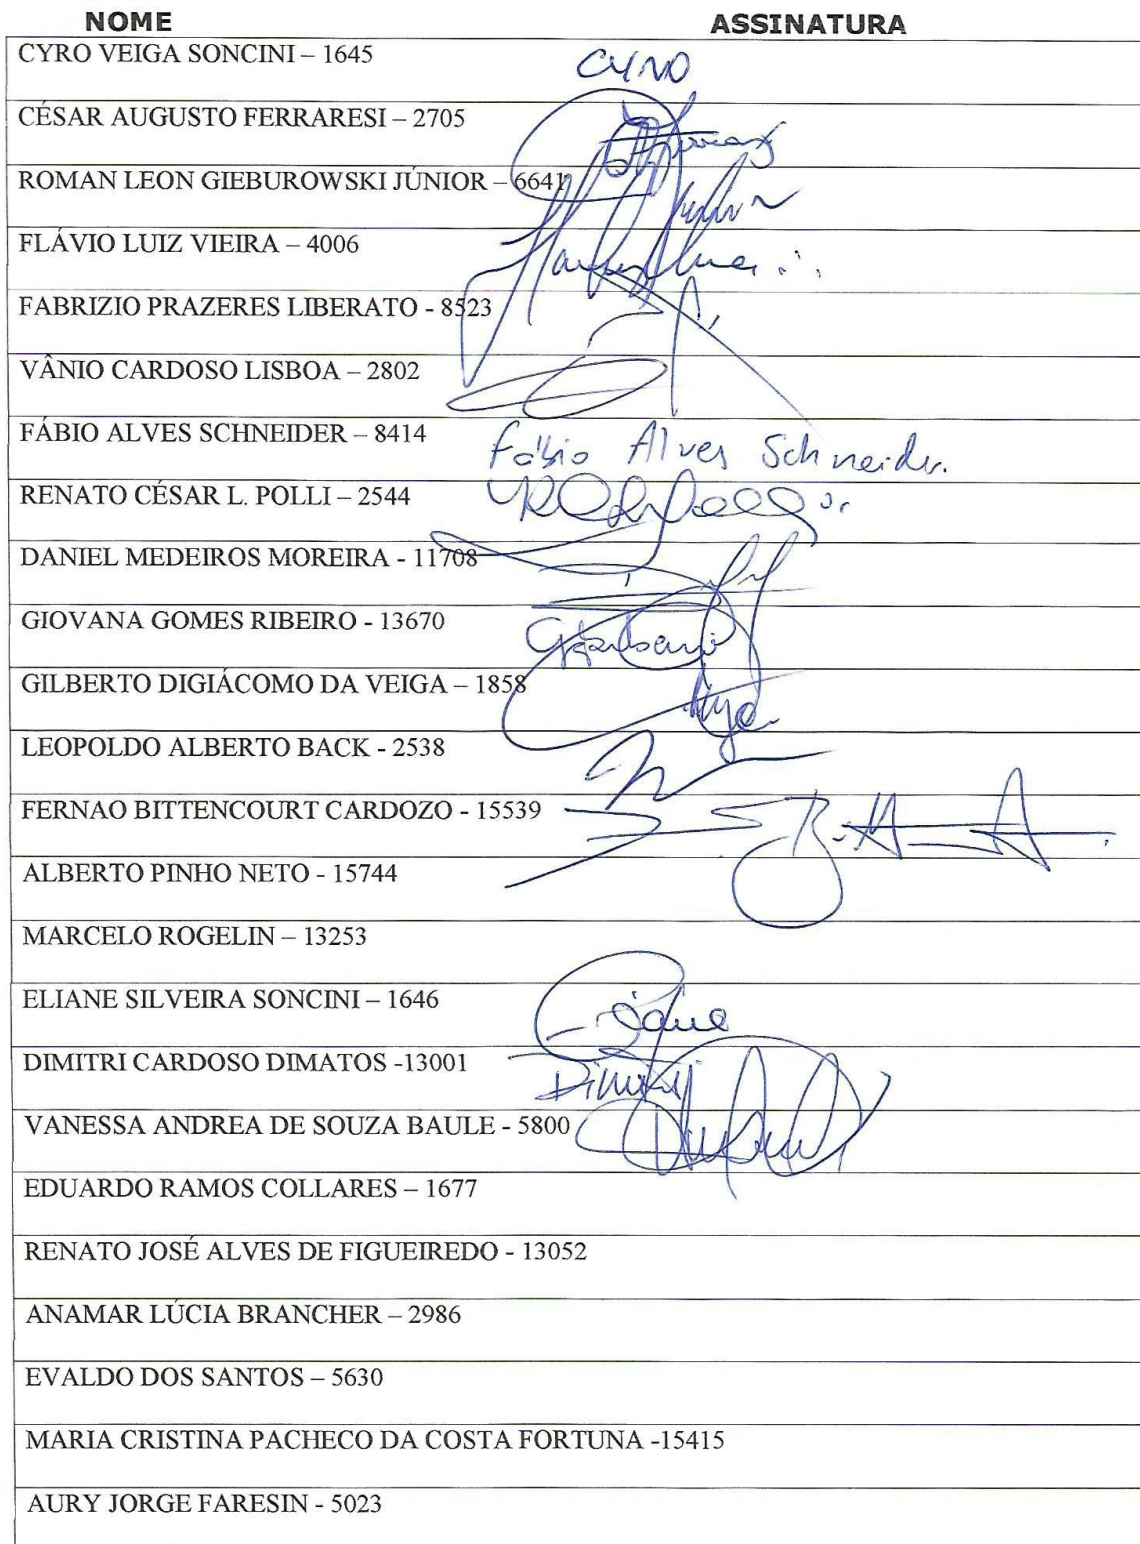 NOME ASSINATURA
CYRO VEIGA SONCINI – 1645 CYRO
CÉSAR AUGUSTO FERRARESI – 2705
ROMAN LEON GIEBUROWSKI JÚNIOR – 6641
FLÁVIO LUIZ VIEIRA – 4006
FABRIZIO PRAZERES LIBERATO - 8523
VÂNIO CARDOSO LISBOA – 2802
FÁBIO ALVES SCHNEIDER – 8414 Fábio Alves Schneider.
RENATO CÉSAR L. POLLI – 2544
DANIEL MEDEIROS MOREIRA - 11708
GIOVANA GOMES RIBEIRO - 13670
GILBERTO DIGIÁCOMO DA VEIGA – 1858
LEOPOLDO ALBERTO BACK - 2538
FERNAO BITTENCOURT CARDOZO - 15539
ALBERTO PINHO NETO - 15744
MARCELO ROGELIN – 13253
ELIANE SILVEIRA SONCINI – 1646
DIMITRI CARDOSO DIMATOS -13001 Dimitri
VANESSA ANDREA DE SOUZA BAULE - 5800
EDUARDO RAMOS COLLARES – 1677
RENATO JOSÉ ALVES DE FIGUEIREDO - 13052
ANAMAR LÚCIA BRANCHER – 2986
EVALDO DOS SANTOS – 5630
MARIA CRISTINA PACHECO DA COSTA FORTUNA -15415
AURY JORGE FARESIN - 5023